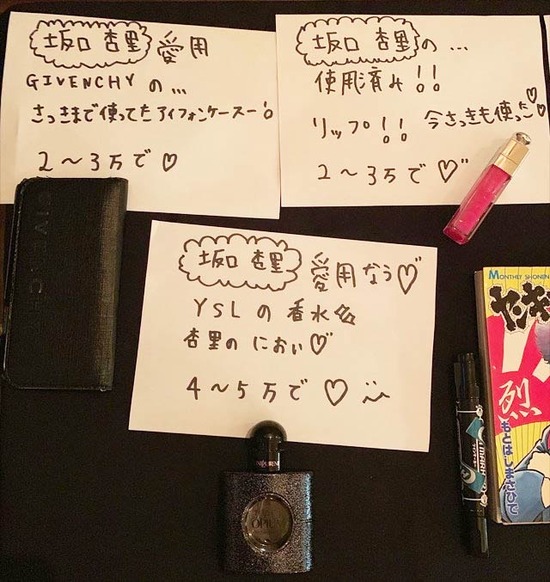 坂口 杏里 愛用
GIVENCHYの...
さっきまで使ってたアイフォンケースー!
2〜3万で♡
坂口 杏里の...
使用済み!!
リップ!! 今さっきも使った♡
2〜3万で♡
坂口 杏里 愛用なう♡
YSLの香水
杏里のにおい♡
4〜5万で♡
GIVENCHY
MONTHLY SHONEN
烈
OPIUM